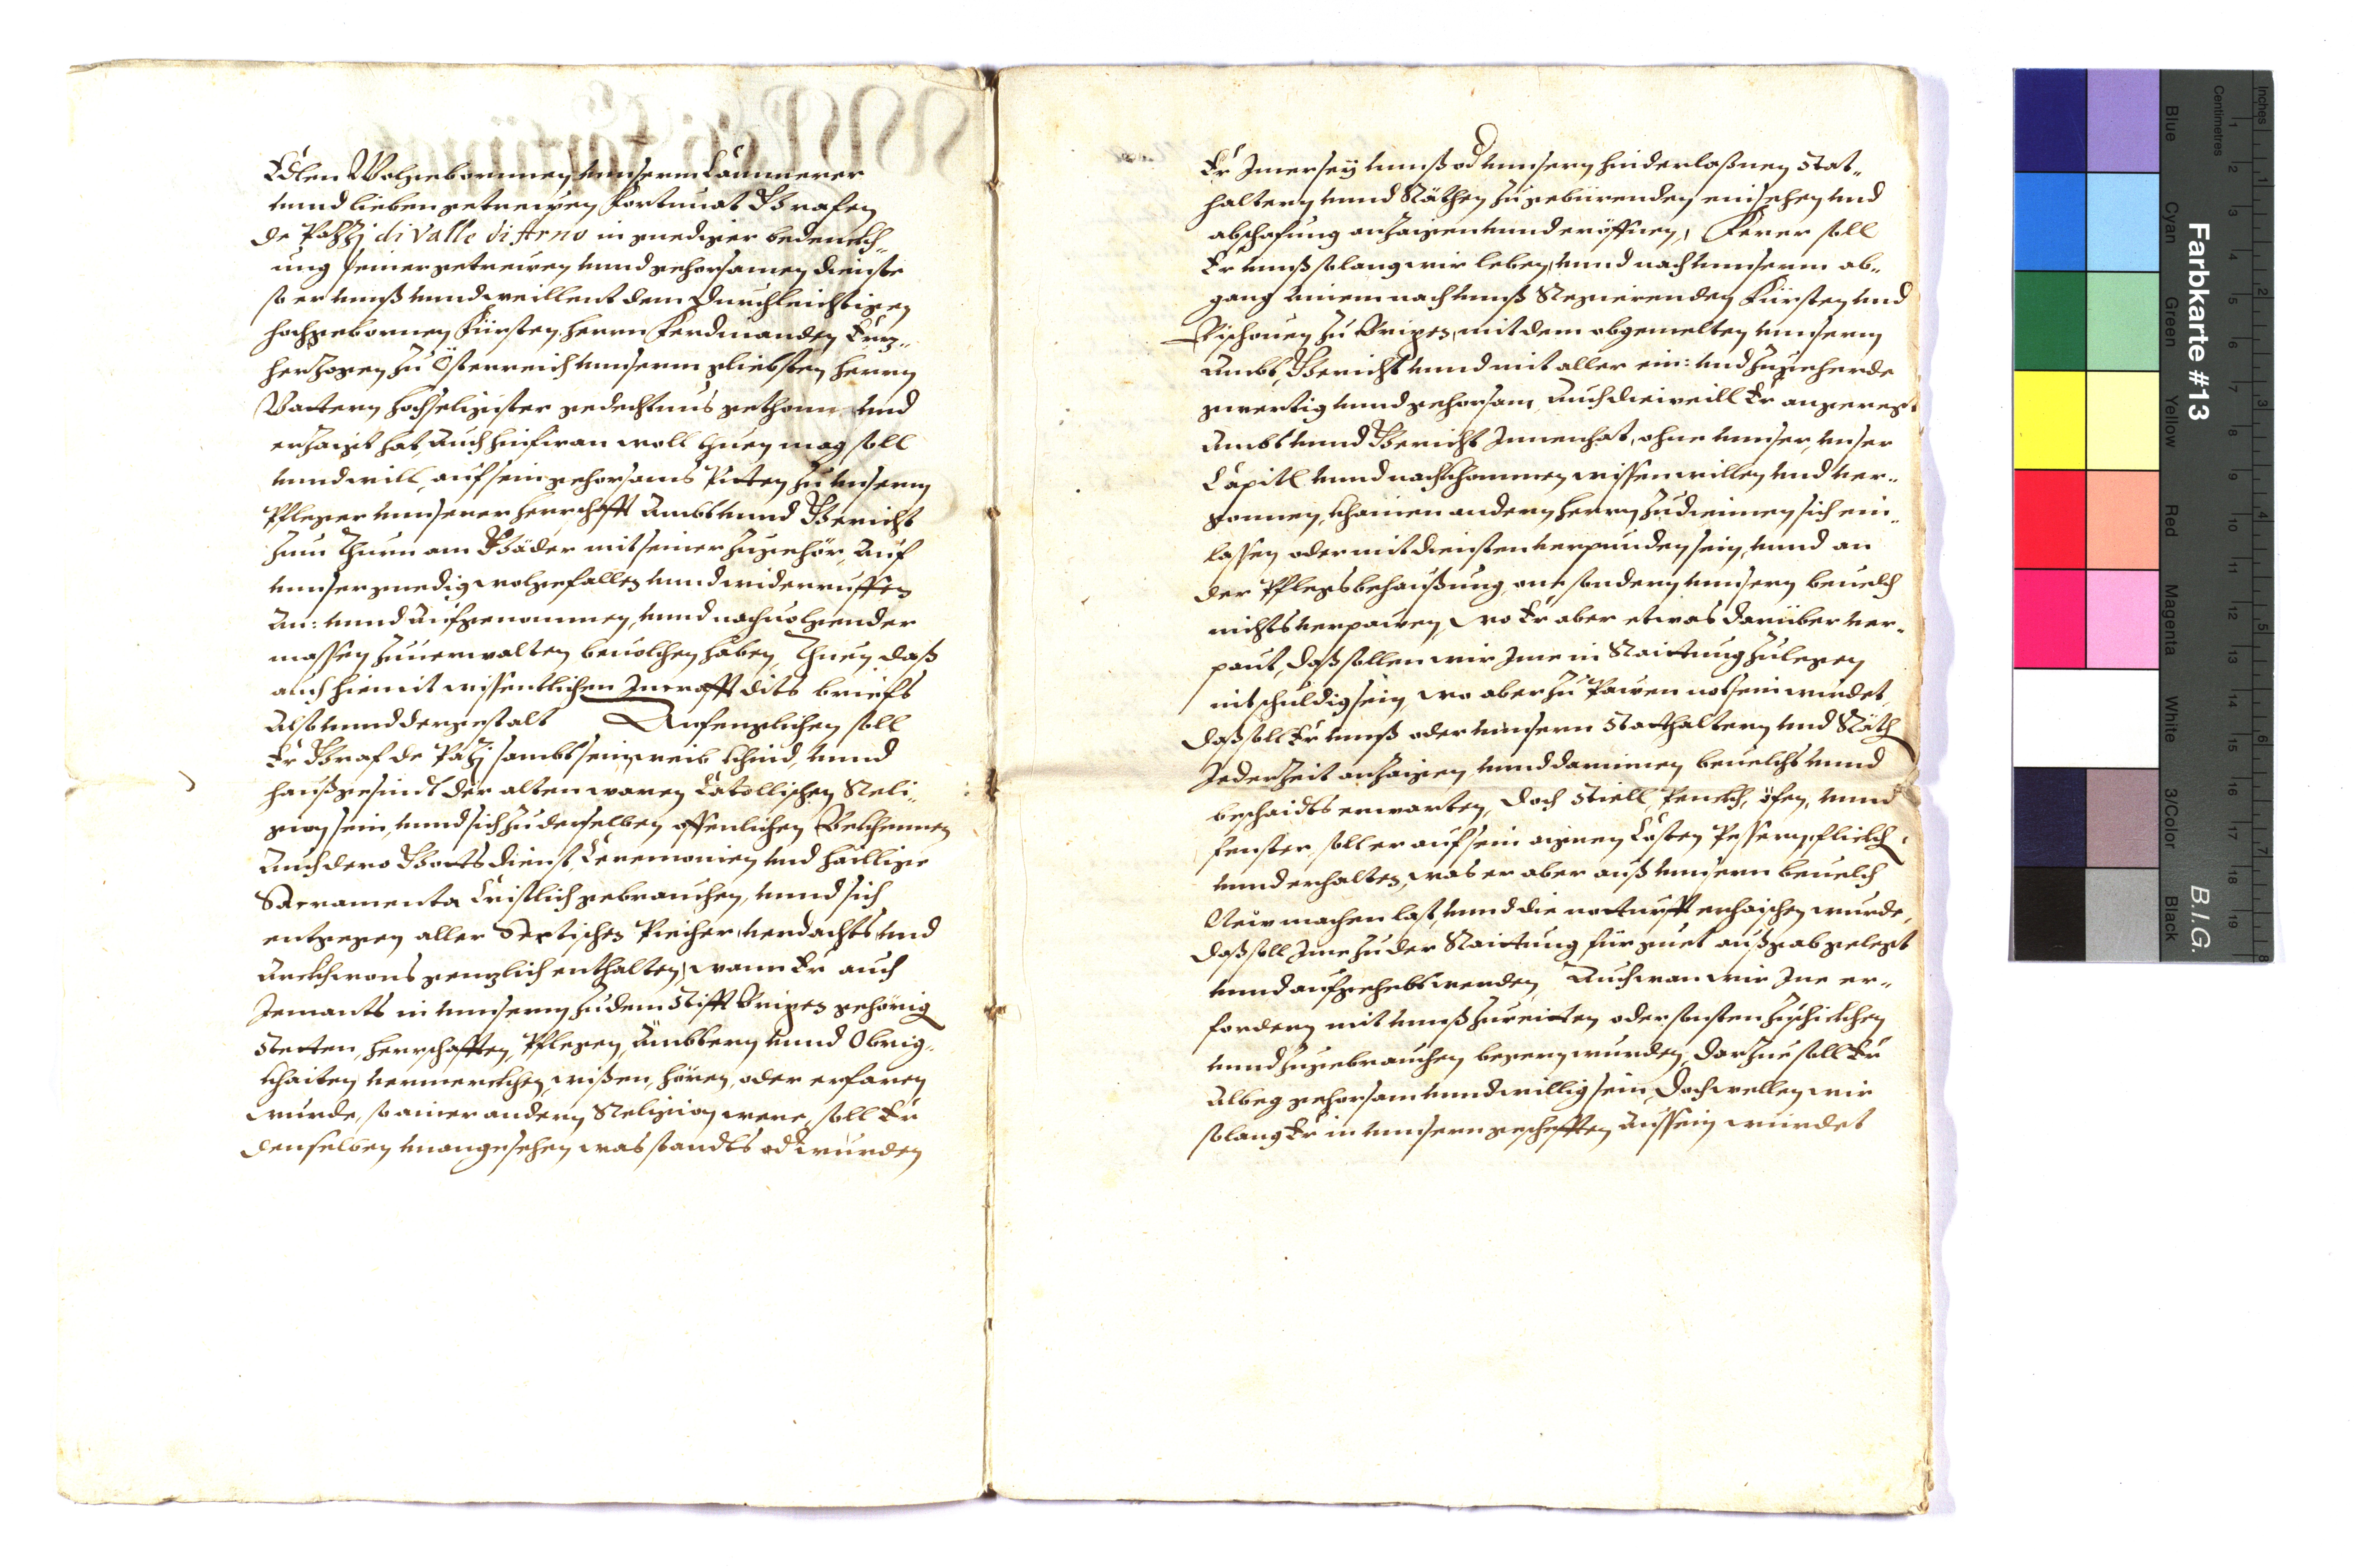 Edlen Wolgebornnen unnserm Cammerer
unnd lieben getrewen Fortunat Grafen
de Pazzj di Valle di Arno in gnediger bedennckh„
ung seiner getrewen unnd gehorsamen dienste
so er unnß unnd weillent dem Durchleichtigen
hochgebornnen Fürsten, herrn Ferdinanden Ertz„
herzogen zu Österreich unnserm gliebsten herrn
Vattern hochseligister gedechtnus gethonn und
erzaigt hat, Auch hinfüran woll thuen mag soll
unnd will, auf sein gehorsams Pitten zu unserm
Pfleger unnserer herrschafft Ambt unnd Gericht
zum Thurn am Gäder mit seiner zugehör, Auf
unnser gnedig wolgefallen unnd widerrueffen
An: unnd Aufgenommen, unnd nachuolgender
massen zuuerwalten beuolchen haben, Thuen daß
auch hiemit wissentlichen Incrafft dits briefs
Also unnd dergestalt Anfengclichen soll
Er Graf de Pazj sambt sein weib khind, unnd
haußgesindt der alten waren Catollischen Reli„
gion sein, unnd sich zu derselben offenlichen Bekhennen
Auch dero Gottsdienst, Ceremonien und hailligen
Sacramenta Cristlich gebrauchen, unnd sich
entgegen aller Sectischen Piecher, verdachts und
Arckhwons gentzlich enthalten, wann Er auch
Jemants in unnsern zu dem Stifft Brixen gehörig
Stetten, herrschafften, Pflegen, Ämbtern unnd Obrig„
khaiten vermerckhen, wißen, hören, oder erfaren
wurde, so ainer andern Religion were, soll Er
denselben unangesehen was standts od wurden
Er Imer sey unnß od unnsern hinderlaßnen Stat„
haltern unnd Räthen zu gebürenden einsehen und
abschafung anzaigen unnd eröffnen, Ferer soll
Er unnß solang wir leben, unnd nach unnserm ab„
gang ainem nach unnß Regierenden Fürsten und
Bischouen zu Brixen, mit dem obgemelten unnserm
Ambt, Gericht unnd mit aller ein: und zugeherde
gwertig unnd gehorsam, Auch dieweill Er angeregt
Ambt unnd Gericht Innenhat, ohne unnser, unser
Capitl unnd nachkhommen wissen willen und ver„
gonnen, khainen andern herrn zu diennen sich ein„
lassen oder mit diensten verpunden sein, unnd an
der Pflegsbehaußung, one sondern unnsern beuelch
nichts verpawen, wo Er aber etwas darüber ver„
paut, daß sollen wir Ime in Raittung zulegen
nit schuldig sein, wo aber zu Pawen not sein wurdet,
daß soll Er unnß oder unnsern Statthaltern und Räth
Jederzeit anzaigen unnd darinnen beuelchs unnd
beschaidts erwarten, doch Stiell, Pennckh, öfen, unnd
fenster soll er auf sein aignen Costen Pessern, flickh
unnd erhalten, was er aber auß unnserm beuelch
Neuw machen last, unnd die notturfft erhaischen wurde,
daß soll Ime zu der Raittung für guet außgab gelegt
unnd aufgehebt werden, Auch wan wir Ine er„
fordern mit unnß zureitten oder sonsten zuschickhen
unnd zugebrauchen begern wurden, darzue soll Er
Albeg gehorsam unnd willig sein, doch wellen wir
solang Er in unnsern gescheften aussein wurdet